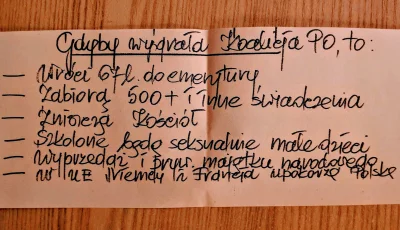 Gdyby wygrała Koalicja PO, to:
— Wróci 67 l. do emerytury
— Zabiorą 500+ i inne świadczenia
— Zniszczą Kościół
— Szkolone będą seksualnie małe dzieci
— Wyprzedaż i pryw. majątku narodowego
— W UE Niemcy i Francja upokorzą Polskę